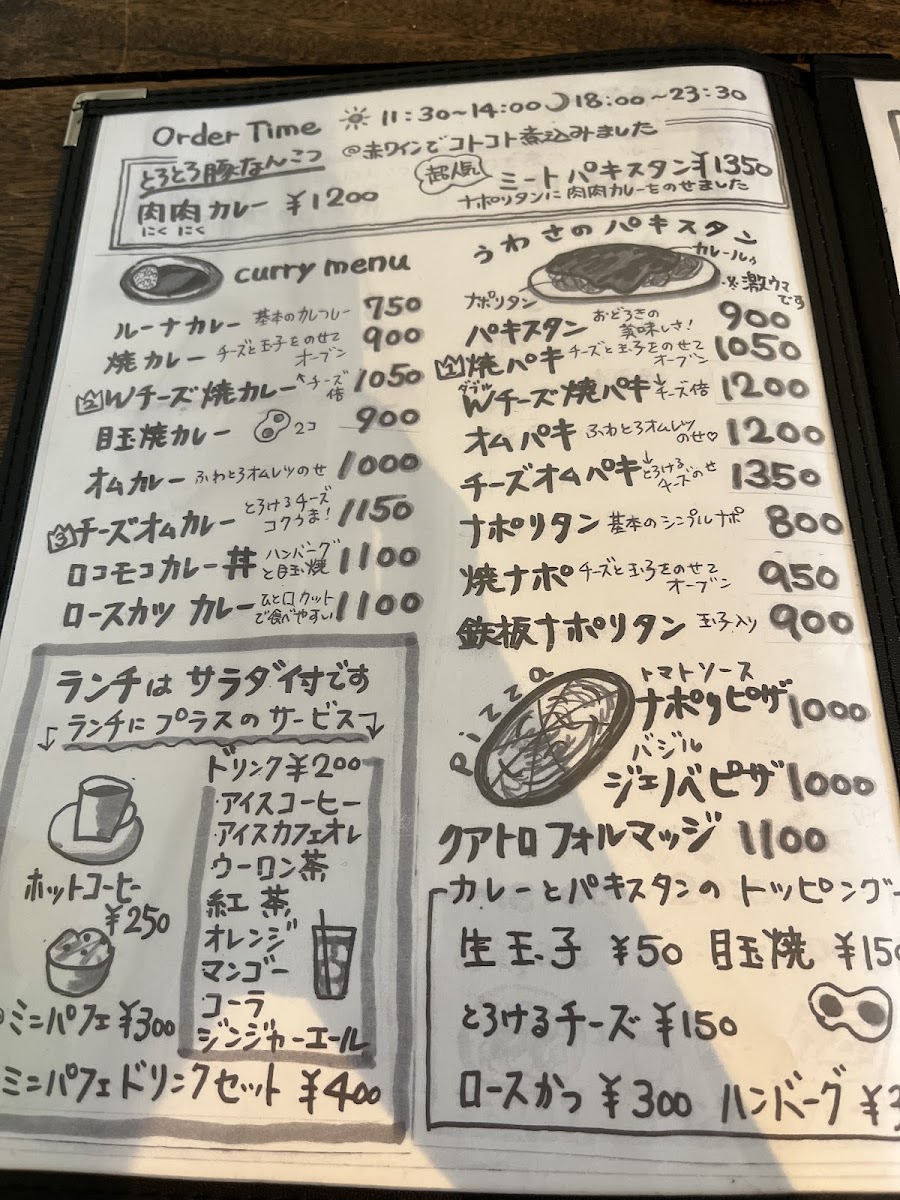 Order Time 11:30~14:00 18:00~23:30
とろとろ豚なんこつ @赤ワインでコトコト煮込みました
肉肉カレー ¥1200
にく にく
超人気 ミートパキスタン ¥1350
ナポリタンに肉肉カレーをのせました
curry menu
ルーナカレー 基本のカレー 750
焼カレー チーズと玉子をのせてオーブン 900
2 Wチーズ焼カレー チーズ倍 1050
目玉焼カレー 2コ 900
オムカレー ふわとろオムレツのせ 1000
3 チーズオムカレー とろけるチーズコクうま! 1150
ロコモコカレー丼 ハンバーグと目玉焼 1100
ロースカツ カレー ひと口カットで食べやすい 1100
うわさのパキスタン
カレールゥ
ナポリタン
※激ウマです
パキスタン おどろきの美味しさ! 900
1 焼パキ チーズと玉子をのせてオーブン 1050
ダブル
Wチーズ焼パキ チーズ倍 1200
オムパキ ふわとろオムレツのせ♡ 1200
チーズオムパキ とろけるチーズのせ 1350
ナポリタン 基本のシンプルナポ 800
焼ナポ チーズと玉子をのせてオーブン 950
鉄板ナポリタン 玉子入り 900
ランチは サラダ付です
ランチに プラスの サービス
ホットコーヒー
¥250
ミニパフェ ¥300
ドリンク ¥200
アイスコーヒー
アイスカフェオレ
ウーロン茶
紅茶
オレンジ
マンゴー
コーラ
ジンジャーエール
ミニパフェドリンクセット ¥400
pizza
トマトソース
ナポリピザ 1000
バジル
ジェノベピザ 1000
クアトロ フォルマッジ 1100
カレーとパキスタンの トッピング
生玉子 ¥50 目玉焼 ¥150
とろけるチーズ ¥150
ロースかつ ¥300 ハンバーグ